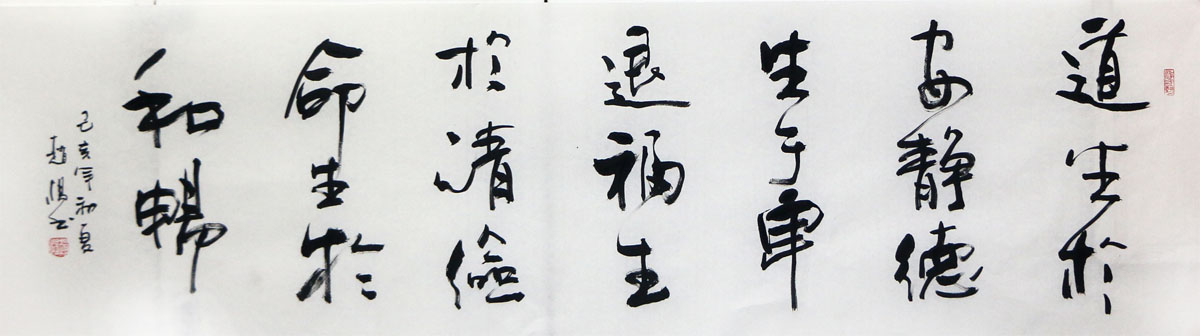 道生於
安静德
生于卑
退福生
於清儉
命生於
和暢
己亥年初夏
趙